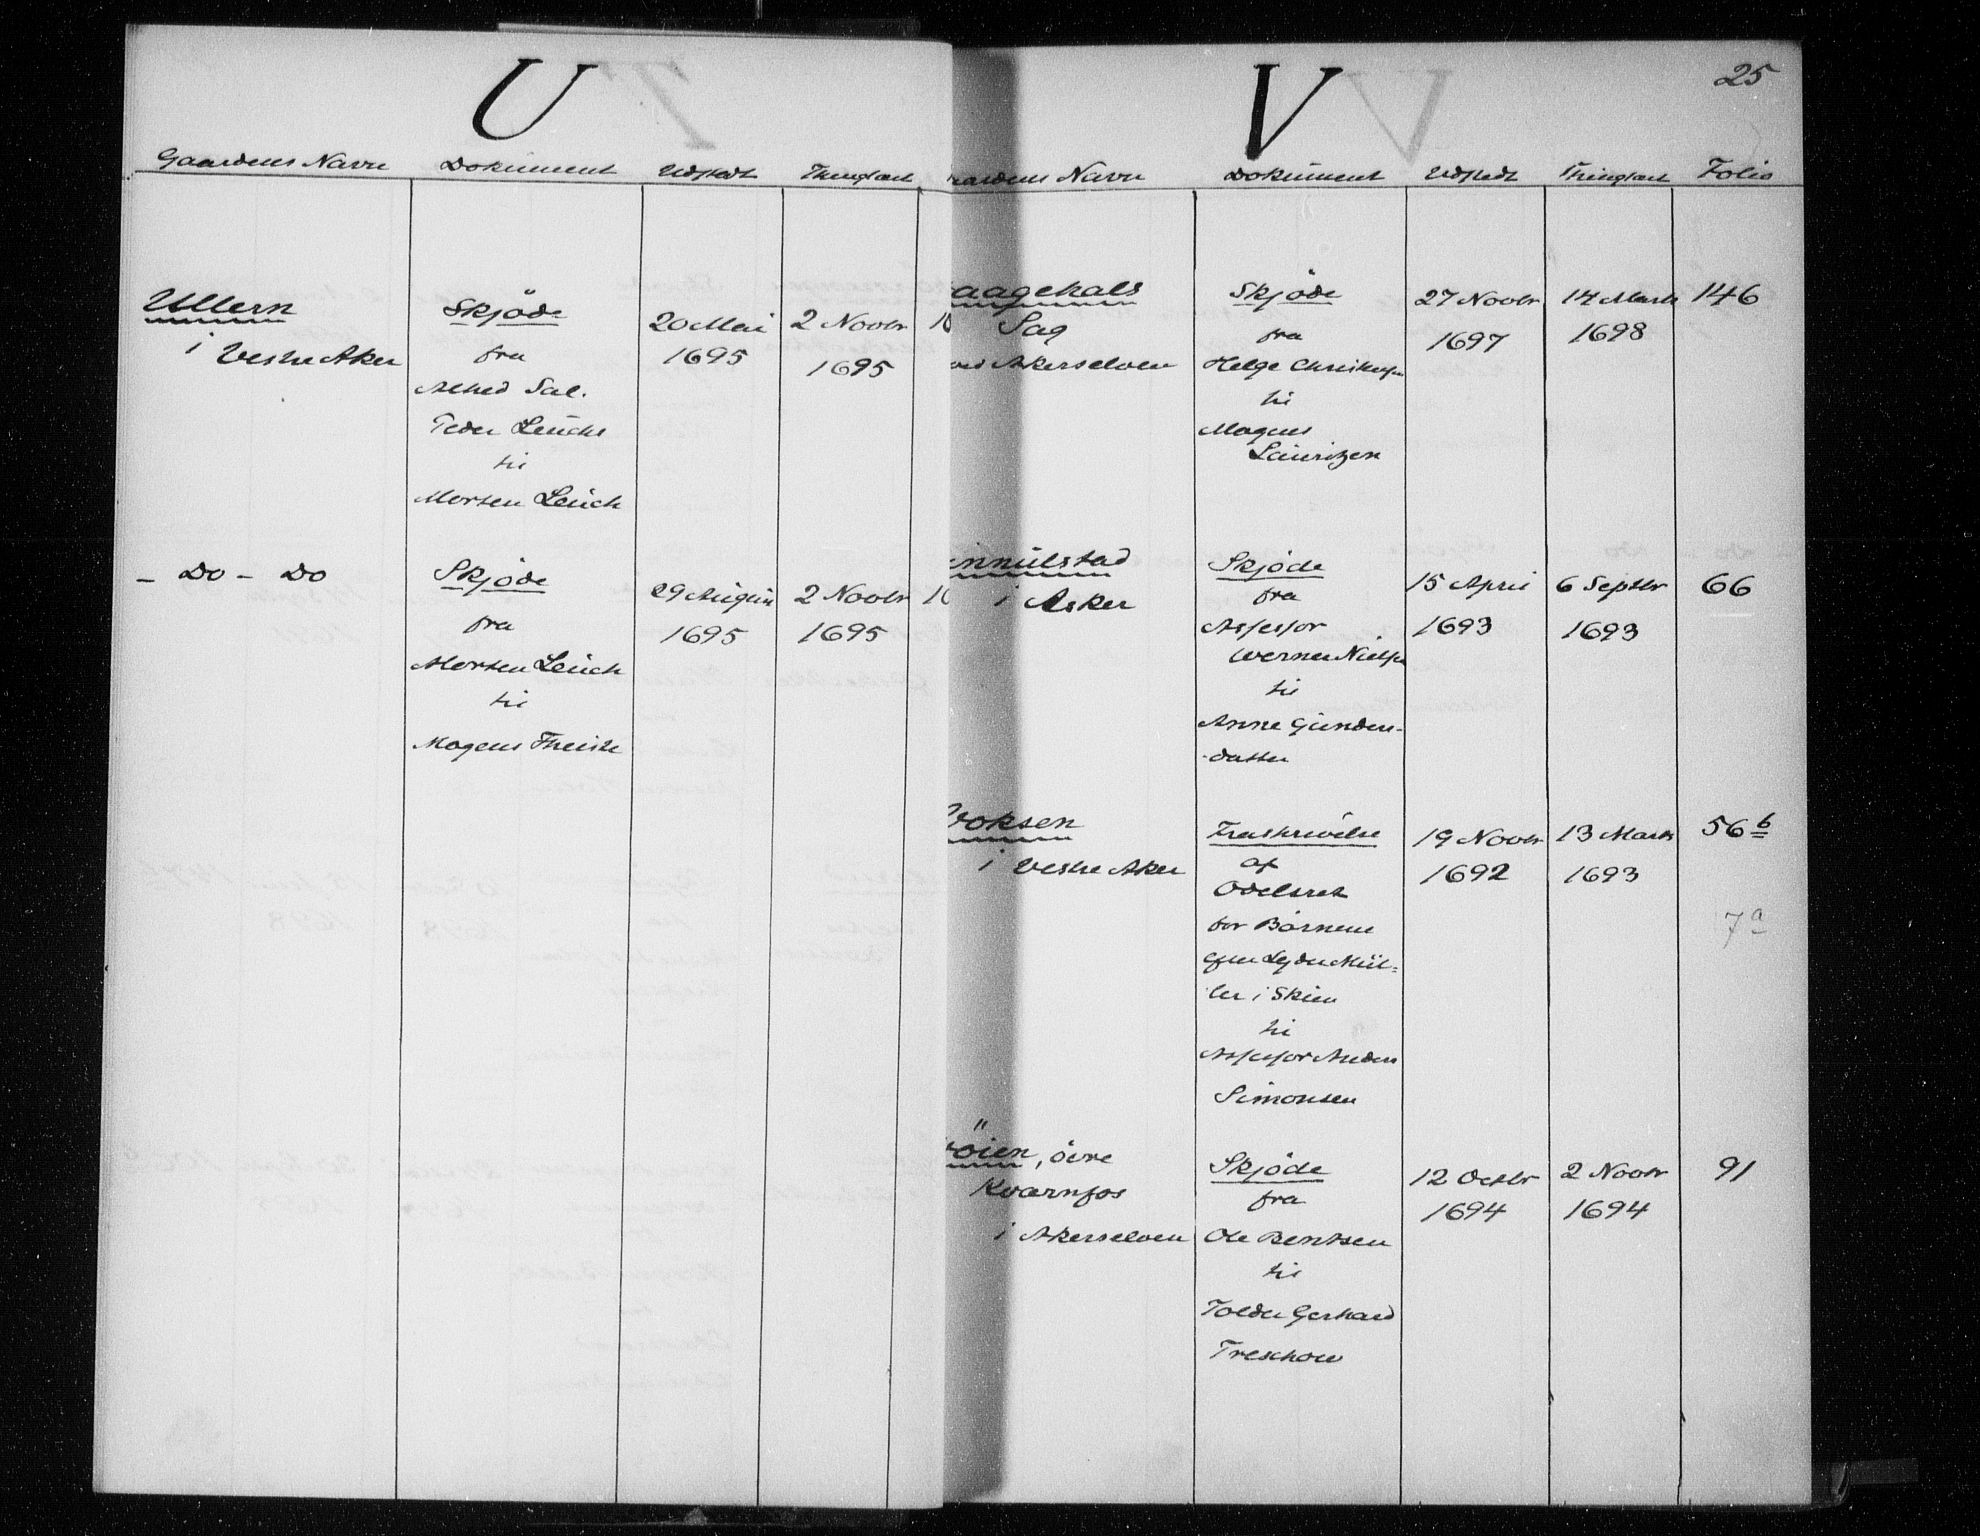 U
Gaardens Navn Dokument Udstedt Thinglæst
Ullern
i Vestre Aker
Skjöde
fra
Alhed Sal.
Peder Leuchs
til
Morten Leuch
20 Mai
1695
2 Novbr
1695
10
- Do - Do
Skjöde
fra
Morten Leuch
til
Mogens
29 August
1695
2 Novbr
1695
10
V
25
aardens Navn Dokument Udstedt Thinglæst Folio
aagehals
Sag
ved Akerselven
Skjöde
fra
Helge Christensen
til
Magnus
Lauritzen
27 Novbr
1697
14 Marts
1698
146
innulstad
i Asker
Skjöde
fra
Assessor
Werner Nielsen
til
Anne Gunders-
-datter
15 April
1693
6 Septbr
1693
66
Voksen
i Vestre Aker
Fraskrivelse
af
Odelsret
for Börnene
efter Lyder Mül-
ler i Skien
til
Assessor Anders
Simonsen
19 Novbr
1692
13 Marts
1693
56 b
7 a
öien, övre
Kvarnfos
i Akerselven
Skjöde
fra
Ole Bentsen
til
Tolder Gerhard
Treschow
12 Octbr
1694
2 Novbr
1694
91